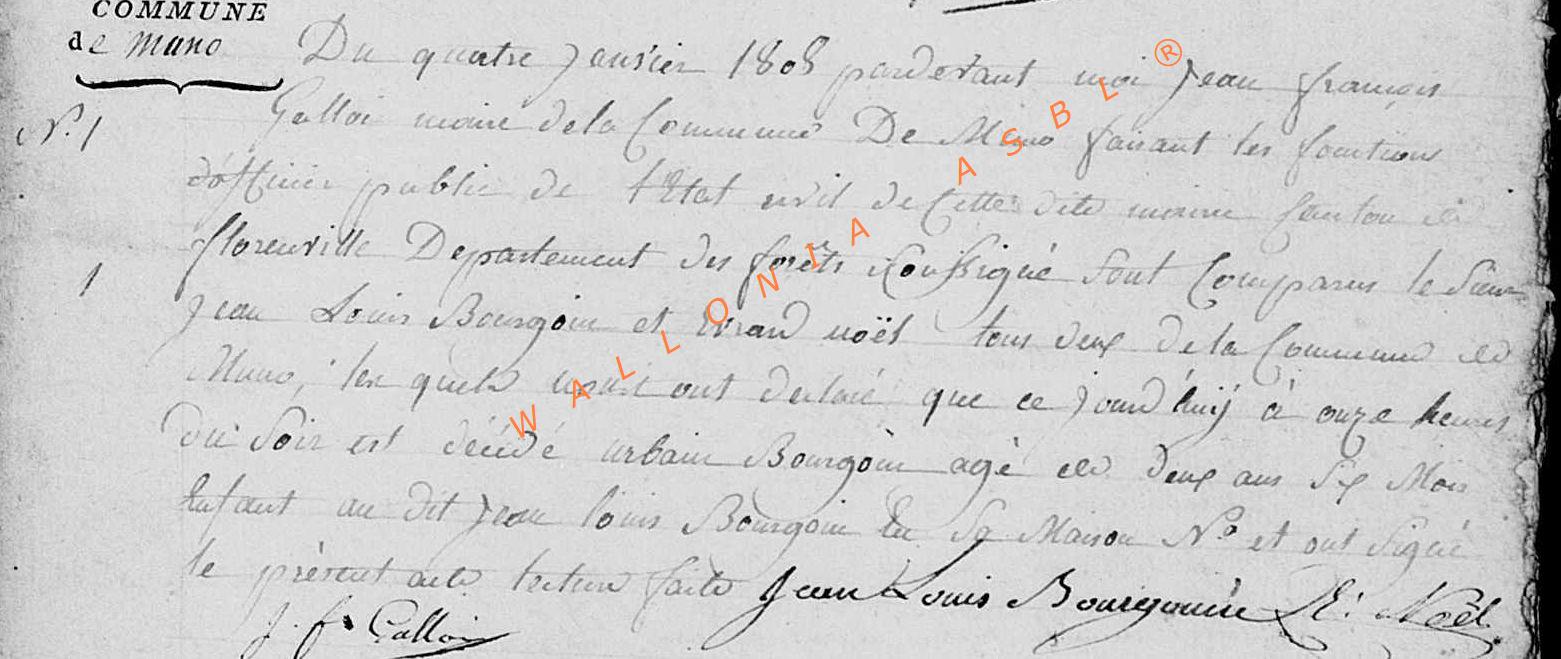 COMMUNE
de Muno
Du quatre Janvier 1808 pardevant moi Jean françois
N.° 1
Galloi maire dela Commune De Muno faisant les fonctions
d'officier public de l'Etat civil de Cette dite mairie Canton de
florenville Departement des forêts soussigné Sont Comparus le Sieur
1
Jean Louis Bourgoin et noël tous deux dela Commune de
Muno, les quels nous ont declaré que ce Jourd'huij à onze heures
du Soir est décédé urbain Bourgoin agé de deux ans Six Mois
Enfant au dit Jean louis Bourgoin En Sa Maison N° et ont Signé
le présent acte lecture faite Jean Louis Bourgouin Noël
J. f. Galloi
WALLONIA ASBL ®